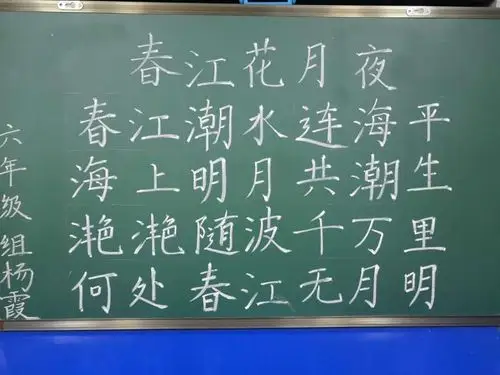 春江花月夜
春江潮水连海平
海上明月共潮生
滟滟随波千万里
何处春江无月明
六年级组杨霞